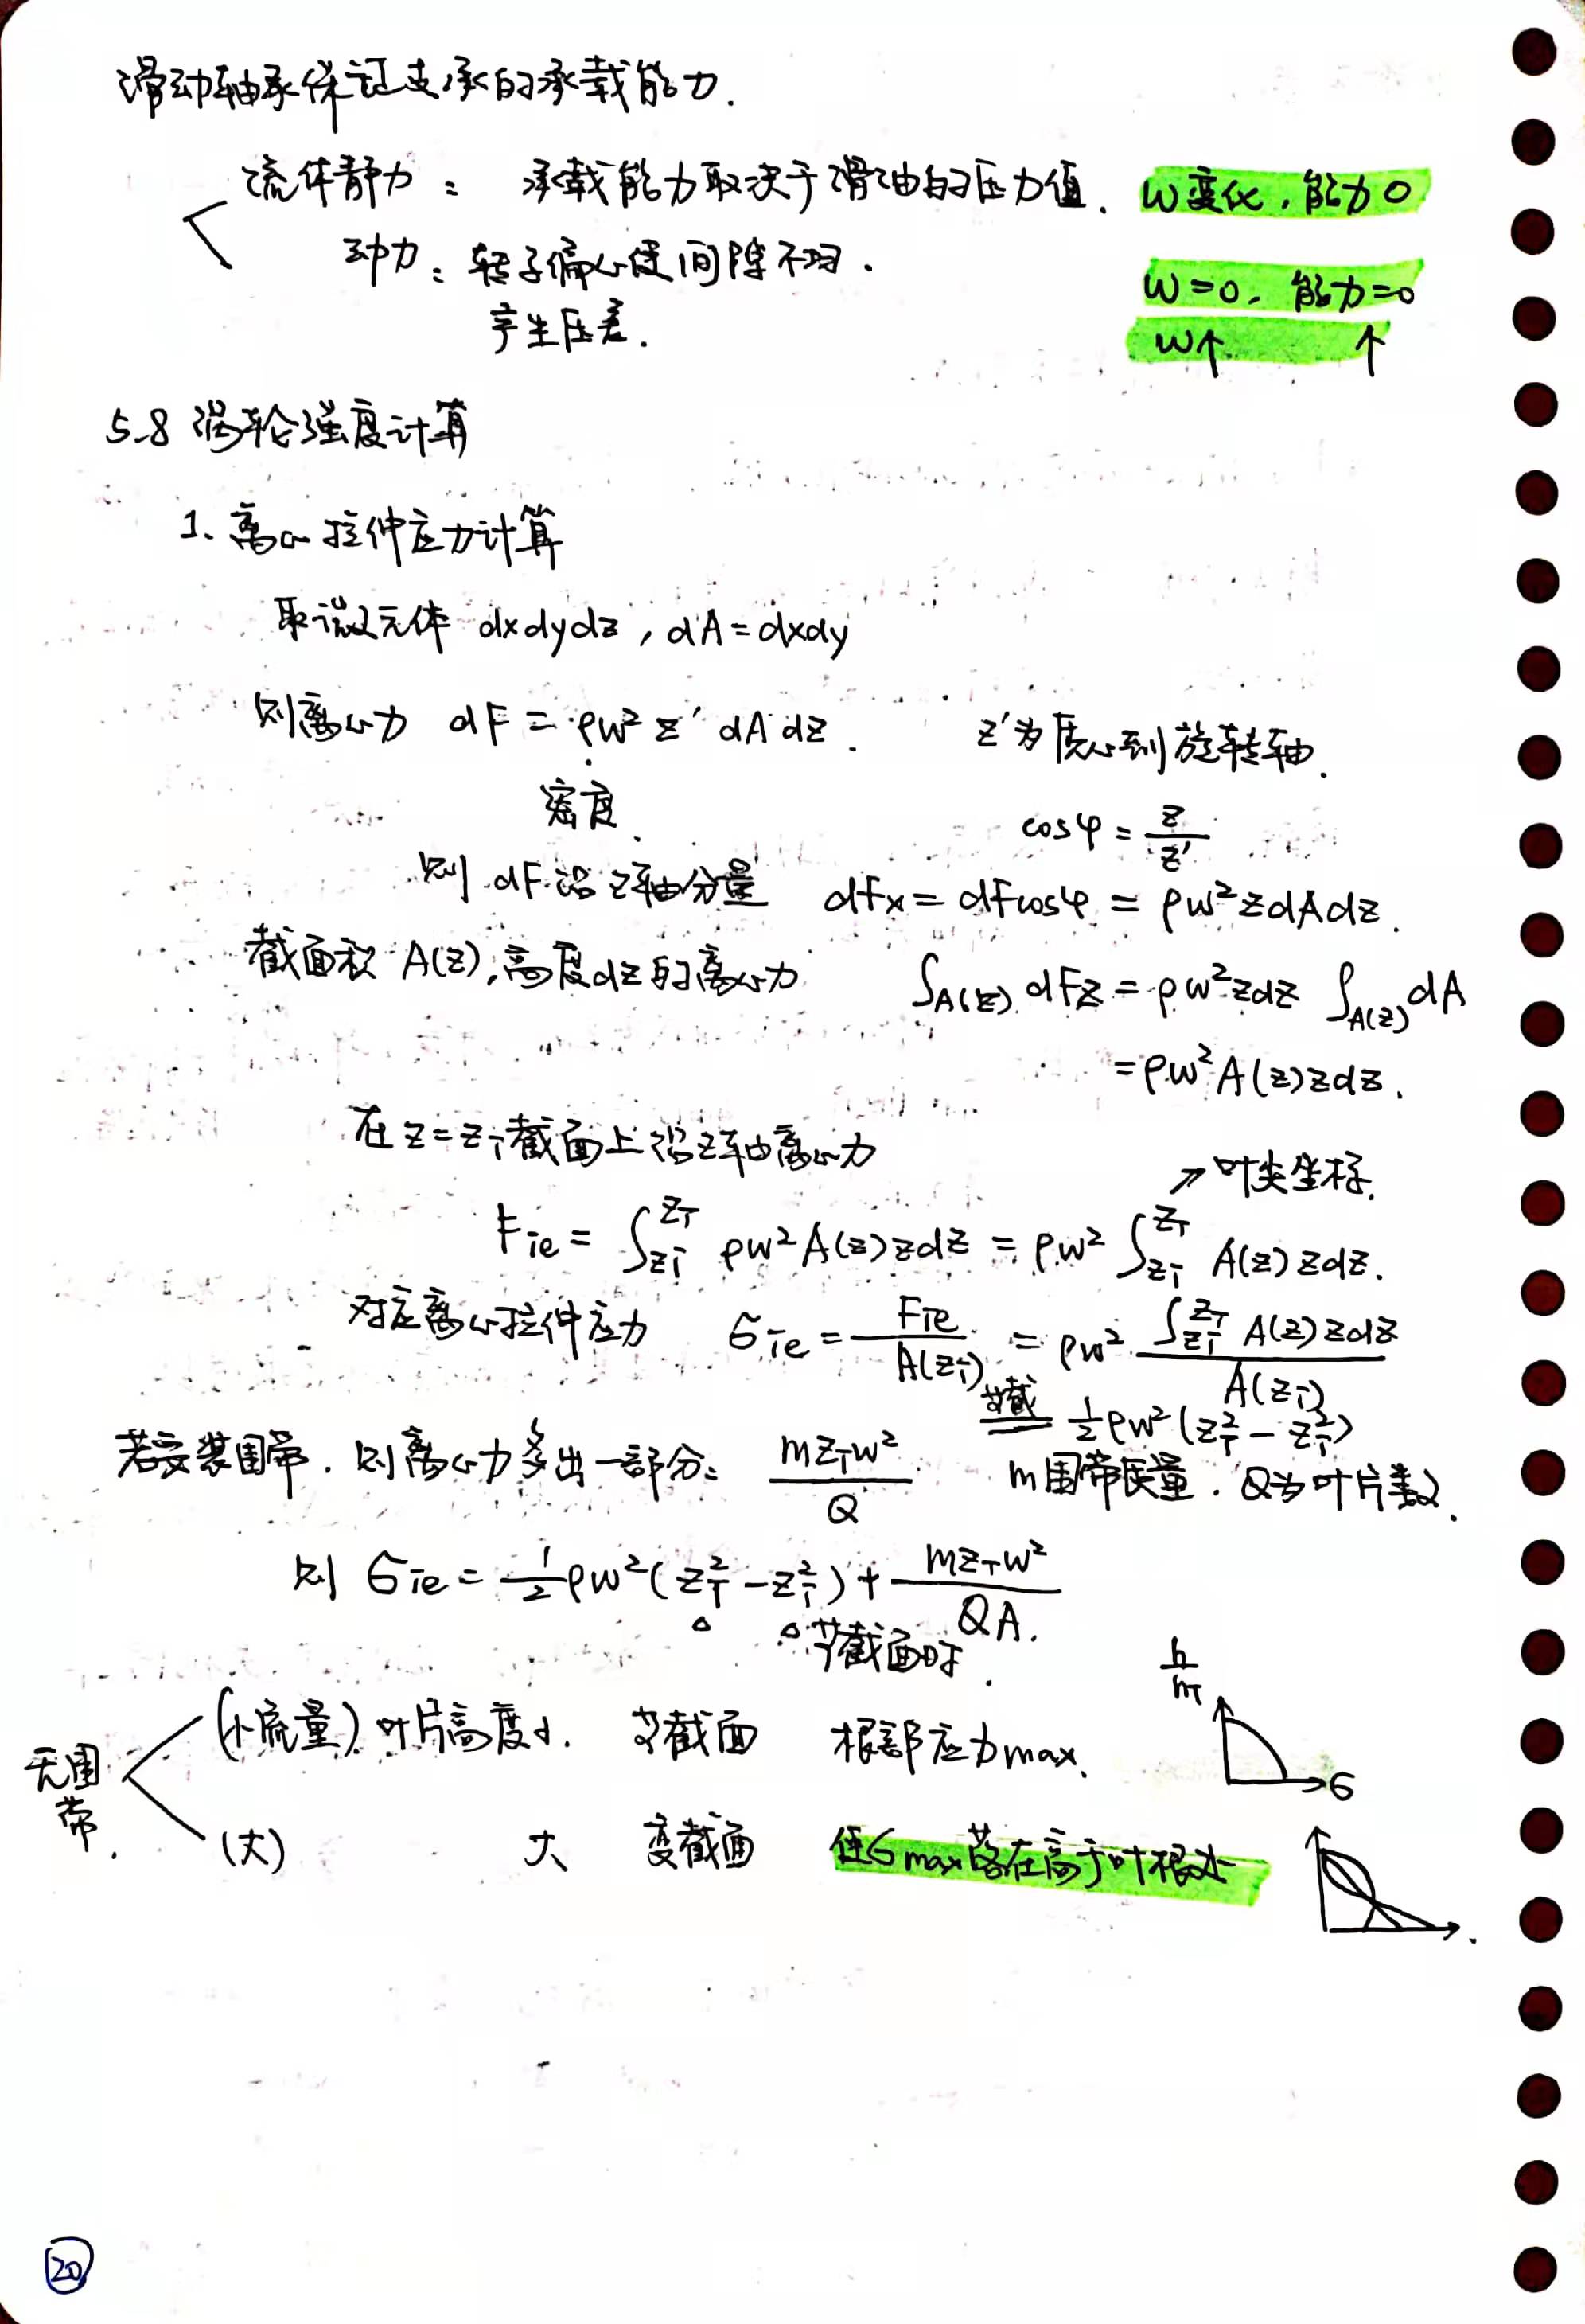 滑动轴承保证支承的承载能力.
流体静力: 承载能力取决于滑油的压力值. ω变化,能力0
动力:转子偏心使间隙不均. ω=0, 能力=0
产生压差. ω↑ ↑
5.8 涡轮强度计算
1.离心拉伸应力计算
取微元体 dxdydz, dA=dxdy
则离心力 dF = ρω² z′ dA dz. z′为质心到旋转轴.
密度. cosφ = z/z′
则 dF沿z轴分量 dFx = dFcosφ = ρω²zdAdz.
截面积 A(z),高度dz的离心力 ∫A(z) dFz = ρω²zdz ∫A(z) dA
=ρω²A(z)zdz.
在z=zi截面上沿z轴离心力
↗叶尖坐标.
Fie = ∫zi^zT ρω²A(z)zdz = ρω² ∫zi^zT A(z)zdz.
对应离心拉伸应力 σie = Fie/A(zi) = ρω² ∫zi^zT A(z)zdz / A(zi)
等截 = ½ρω²(zT²-zi²)
若安装围带.则离心力多出一部分: mzTω²/Q m围带质量.Q为叶片数.
则 σie = ½ρω²(zT²-zi²)+ mzTω²/QA.
等截面时.
h/hT
无围带.
(小流量)叶片高度小. 等截面 根部应力max. σ
(大) 大 变截面 使σmax落在高于叶根处
20